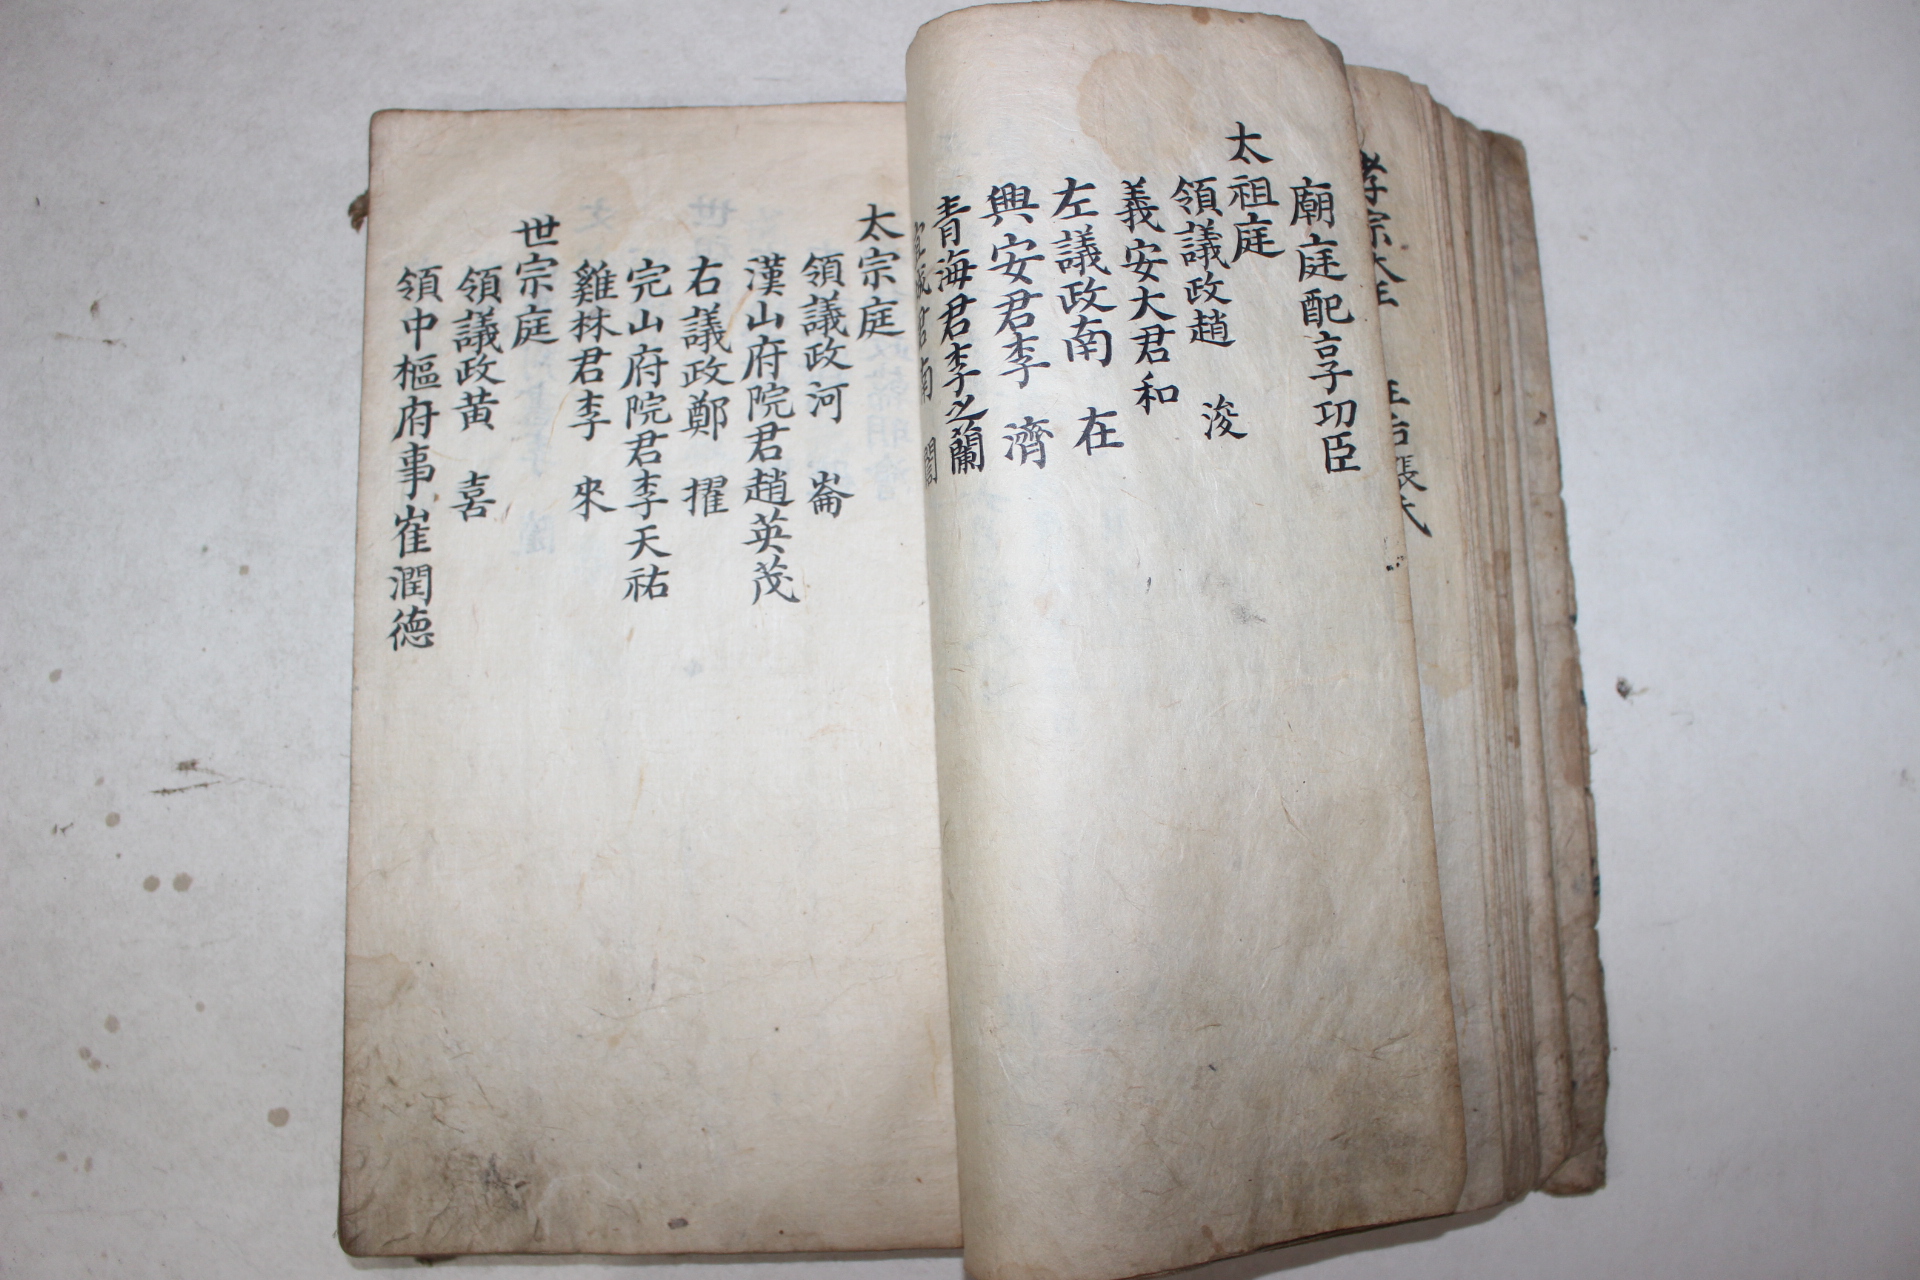 孝宗大王 王后張氏
廟庭配享功臣
太祖庭
領議政趙 浚
義安大君 和
左議政南 在
興安君李 濟
青海君李之蘭
君南 誾
太宗庭
領議政河 崙
漢山府院君趙英茂
右議政鄭 擢
完山府院君李天祐
雞林君李 來
世宗庭
領議政黃 喜
領中樞府事崔潤德